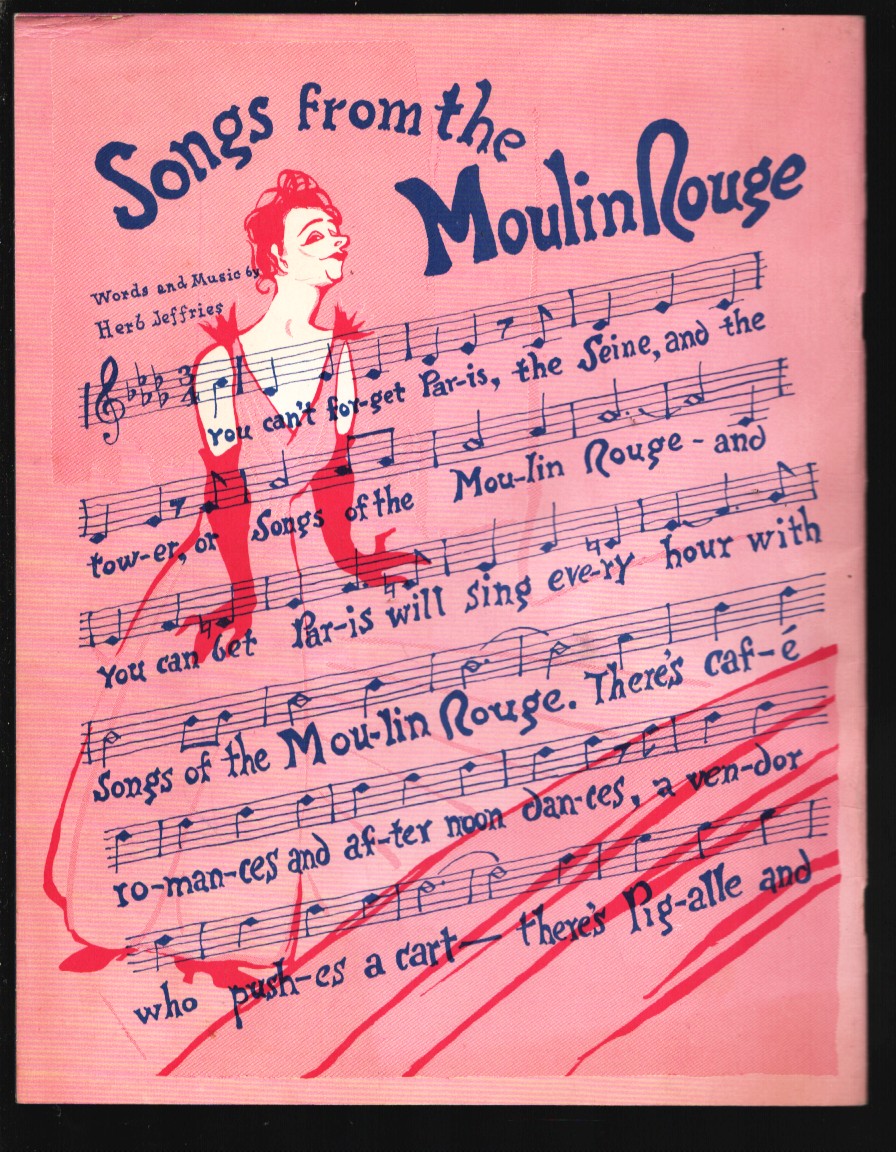 Songs from the
Moulin Rouge
Words and Music by
Herb Jeffries
3
4
You can't for-get Par-is, the Seine, and the
tow-er, or Songs of the Mou-lin Rouge - and
You can bet Par-is will sing eve-ry hour with
Songs of the Mou-lin Rouge. There's caf-é
ro-man-ces and af-ter noon dan-ces, a ven-dor
who push-es a cart— there's Pig-alle and